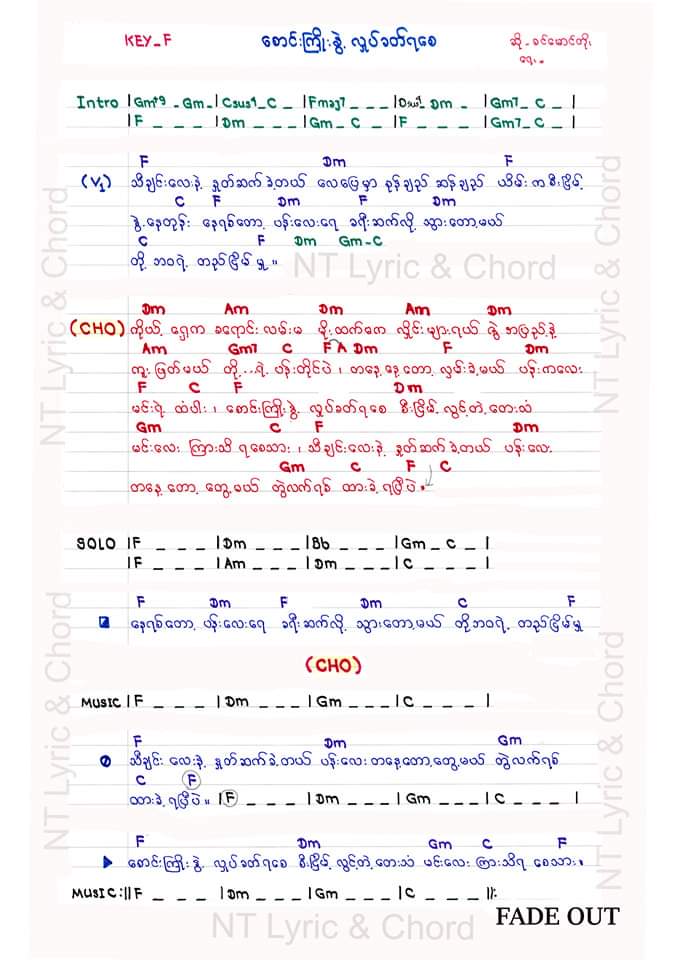 KEY_F စောင်းကြိုးနွဲ့ လှုပ်ခတ်ရစေ ဆို - ခင်မောင်တိုး
ရေး -
Intro |Gm+9 _ Gm _ | Csus4 _ C _ | Fmaj7 _ _ _ | Dsus4 _ Dm _ | Gm7 _ C _ |
|F _ _ _ | Dm _ _ _ | Gm _ C _ | F _ _ _ | Gm7 _ C _ |
F Dm F
(V1) သီချင်းလေးနဲ့ နှုတ်ဆက်ခဲ့တယ် လေပြေမှာ စုန်ချည် ဆန်ချည် ယိမ်းက စီးငြိမ့်
C F Dm F Dm
နွဲ့နေတုန်း နေရစ်တော့ ပန်းလေးရေ ခရီးဆက်လို့ သွားတော့မယ်
C F Dm Gm-C
တို့ ဘဝရဲ့ တည်ငြိမ်မှု ။
NT Lyric & Chord
Dm Am Dm Am Dm
(CHO) ကိုယ့် ရှေ့က ခရောင်းလမ်းမ မို့ထက်တေ လှိုင်းများရယ် ဖွဲ့အပြည့်နဲ့
Am Gm7 C F A Dm F Dm
ကူးဖြတ်မယ် တို့...ရဲ့ ပန်းတိုင်ပဲ ၊ တနေ့နေ့တော့ လှမ်းခဲ့မယ် ပန်းကလေး
F C F Dm
မင်းရဲ့ ထံပါး ၊ စောင်းကြိုးနွဲ့ လှုပ်ခတ်ရစေ စီးငြိမ့် လွင့်တဲ့ တေးသံ
Gm C F Dm
မင်းလေး ကြားသိ ရစေသား ၊ သီချင်းလေးနဲ့ နှုတ်ဆက်ခဲ့တယ် ပန်းလေး
Gm C F C
တနေ့တော့ တွေ့မယ် တွဲလက်ရစ် ထားခဲ့ ရပြီပဲ ။
SOLO |F _ _ _ | Dm _ _ _ | Bb _ _ _ | Gm _ C _ |
|F _ _ _ | Am _ _ _ | Dm _ _ _ | C _ _ _ |
F Dm F Dm C F
နေရစ်တော့ ပန်းလေးရေ ခရီးဆက်လို့ သွားတော့မယ် တို့ဘဝရဲ့ တည်ငြိမ်မှု
(CHO)
MUSIC |F _ _ _ | Dm _ _ _ | Gm _ _ _ | C _ _ _ |
F Dm Gm
သီချင်း လေးနဲ့ နှုတ်ဆက်ခဲ့တယ် ပန်းလေး တနေ့တော့တွေ့မယ် တွဲလက်ရစ်
C F
ထားခဲ့ ရပြီပဲ ။ |F _ _ _ | Dm _ _ _ | Gm _ _ _ | C _ _ _ |
F Dm Gm C F
စောင်းကြိုးနွဲ့ လှုပ်ခတ်ရစေ စီးငြိမ့် လွင့်တဲ့ တေးသံ မင်းလေး ကြားသိရ စေသား ။
MUSIC:||F _ _ _ | Dm _ _ _ | Gm _ _ _ | C _ _ _ ||:
FADE OUT
NT Lyric & Chord
NT Lyric & Chord
NT Lyric & Chord
NT Lyric & Chord
NT Lyric & Chord